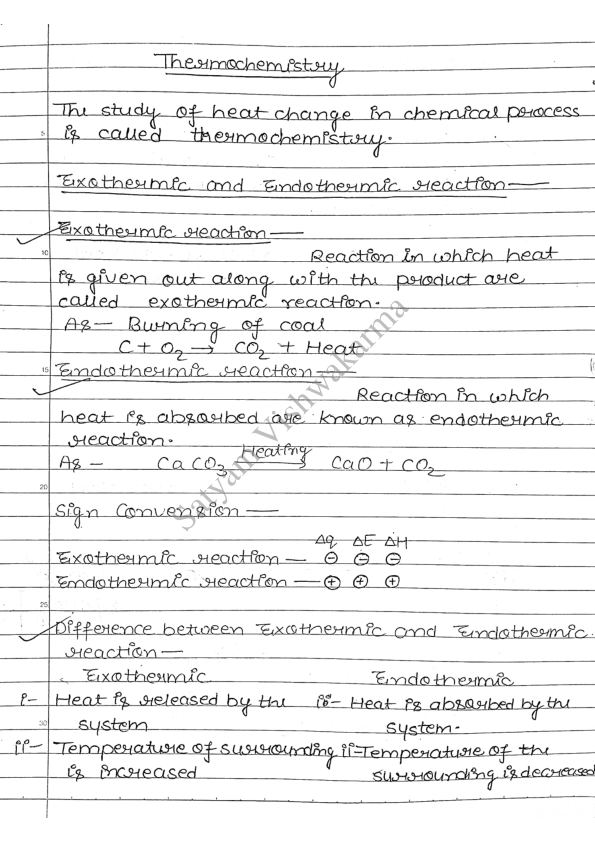 Thermochemistry
The study of heat change in chemical process
5 is called thermochemistry.
Exothermic and Endothermic reaction —
Exothermic reaction —
10 Reaction in which heat
is given out along with the product are
called exothermic reaction.
As — Burning of coal
C + O₂ → CO₂ + Heat
15 Endothermic reaction —
Reaction in which
heat is absorbed are known as endothermic
reaction.
As — CaCO₃ Heating → CaO + CO₂
20
Sign Convension —
Δq ΔE ΔH
Exothermic reaction — ⊖ ⊖ ⊖
Endothermic reaction — ⊕ ⊕ ⊕
25
Difference between Exothermic and Endothermic
reaction —
Exothermic Endothermic
i- Heat is released by the i- Heat is absorbed by the
30 system system.
ii- Temperature of surrounding ii- Temperature of the
is increased surrounding is decreased
Satyam Vishwakarma